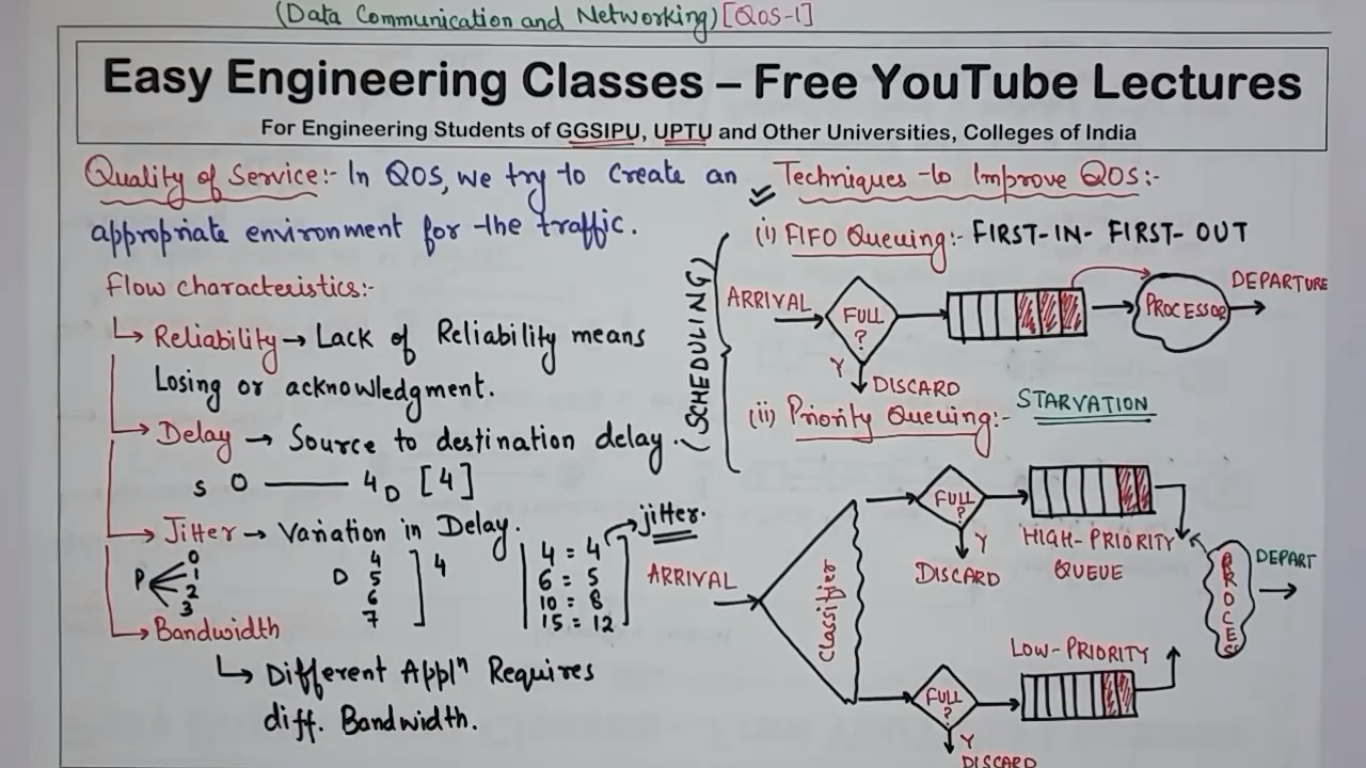 (Data Communication and Networking) [QOS-1]
Easy Engineering Classes – Free YouTube Lectures
For Engineering Students of GGSIPU, UPTU and Other Universities, Colleges of India
Quality of Service:- In QOS, we try to create an
appropriate environment for the traffic.
Flow characteristics:-
↳ Reliability → Lack of Reliability means
Losing or acknowledgment.
→ Delay → Source to destination delay.
S 0 —— 4 D [4]
→ Jitter → Variation in Delay.
P 0 1 2 3
D 4 5 6 7 ] 4
4 = 4
6 = 5
10 = 8
15 = 12
jitter.
→ Bandwidth
↳ Different Applⁿ Requires
diff. Bandwidth.
Techniques to Improve QOS:-
(SCHEDULING)
(i) FIFO Queuing:- FIRST-IN- FIRST- OUT
ARRIVAL
FULL
?
Y
DISCARD
PROCESSOR
DEPARTURE
(ii) Priority Queuing:- STARVATION
ARRIVAL
Classifier
FULL
?
Y
DISCARD
HIGH-PRIORITY
QUEUE
PROCES
DEPART
LOW-PRIORITY
FULL
?
Y
DISCARD